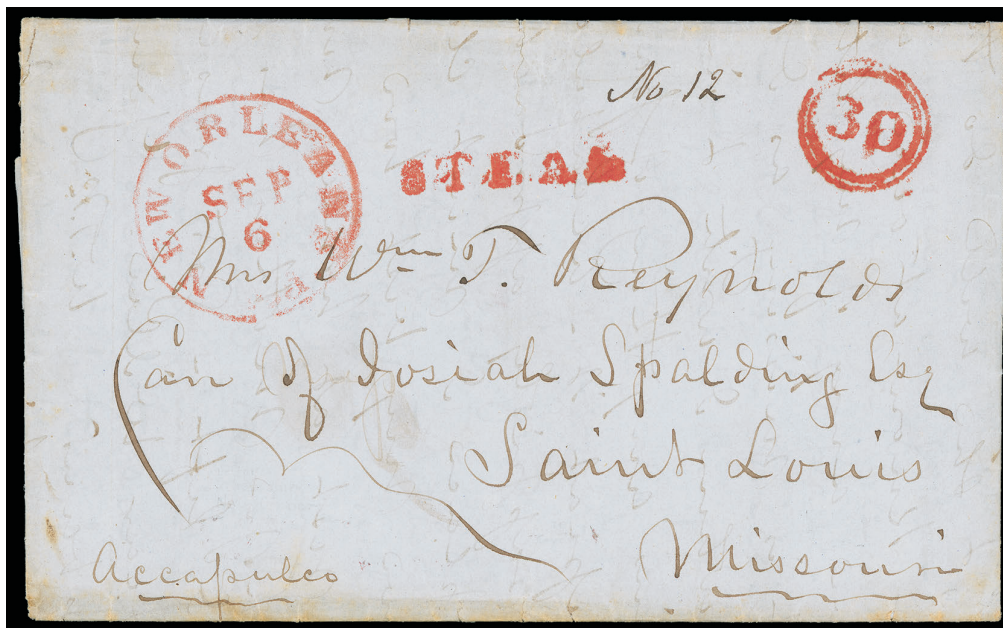 No 12
30
NEW ORLEANS
SEP
6
STEAM
Mrs Wm T. Reynolds
Car of Josiah Spalding Esq
Saint Louis
Missouri
Accapulco